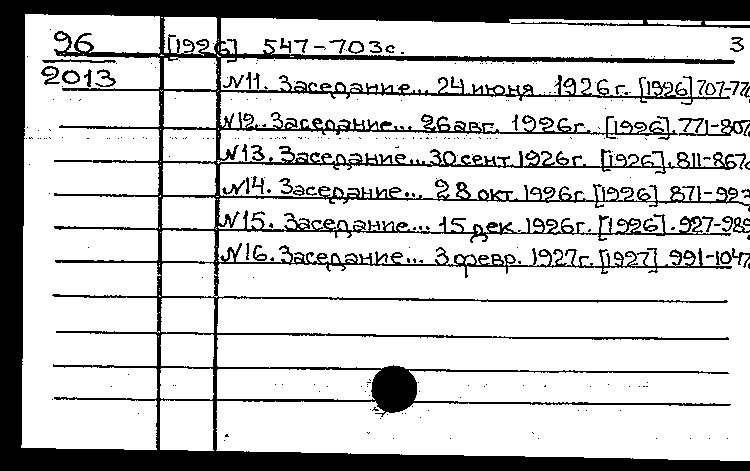 96 [1926]. 547-703с. 3
2013
№11. Заседание... 24 июня 1926г. [1926] 707-77
№12. Заседание... 26 авг. 1926г. [1926]. 771-807
№13. Заседание... 30 сент. 1926г. [1926]. 811-867с
№14. Заседание... 28 окт. 1926г. [1926] 871-923
№15. Заседание... 15 дек. 1926г. [1926]. 927-989
№16. Заседание... 3 февр. 1927г. [1927]. 991-1047